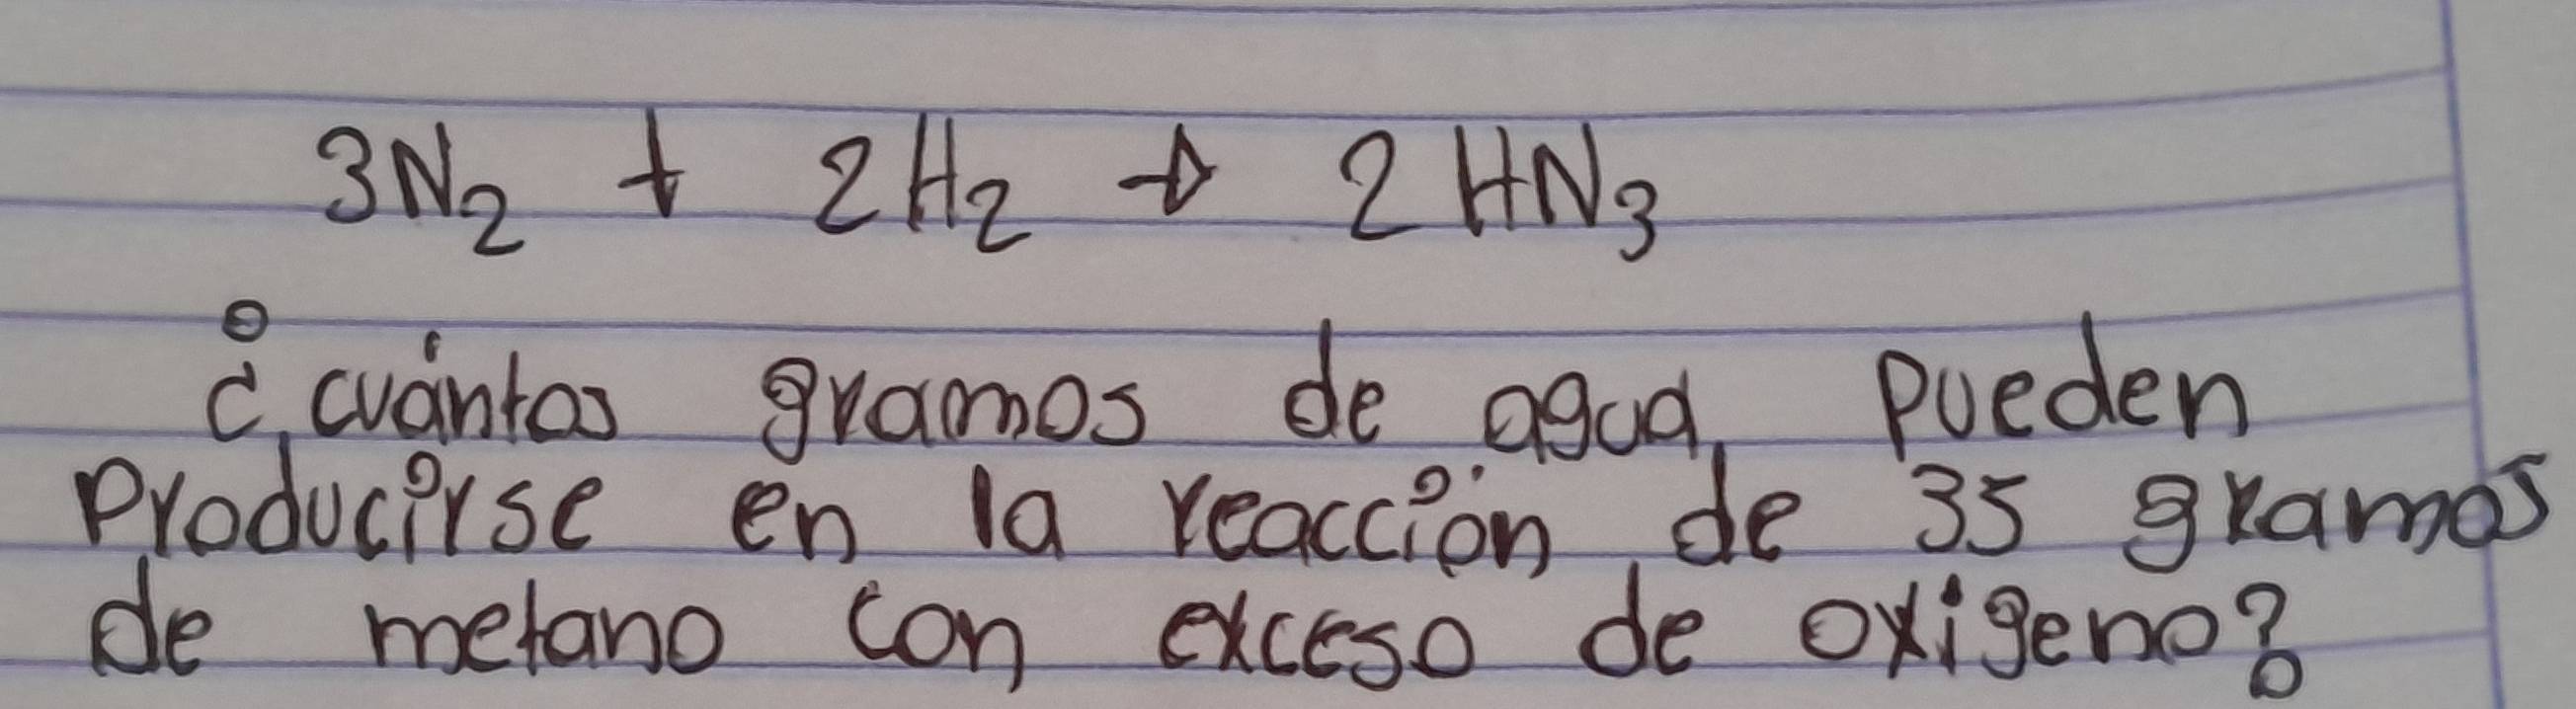 3N₂ + 2H₂ → 2HN₃
¿cuántos gramos de agua pueden
producirse en la reacción de 35 gramos
de metano con exceso de oxigeno?